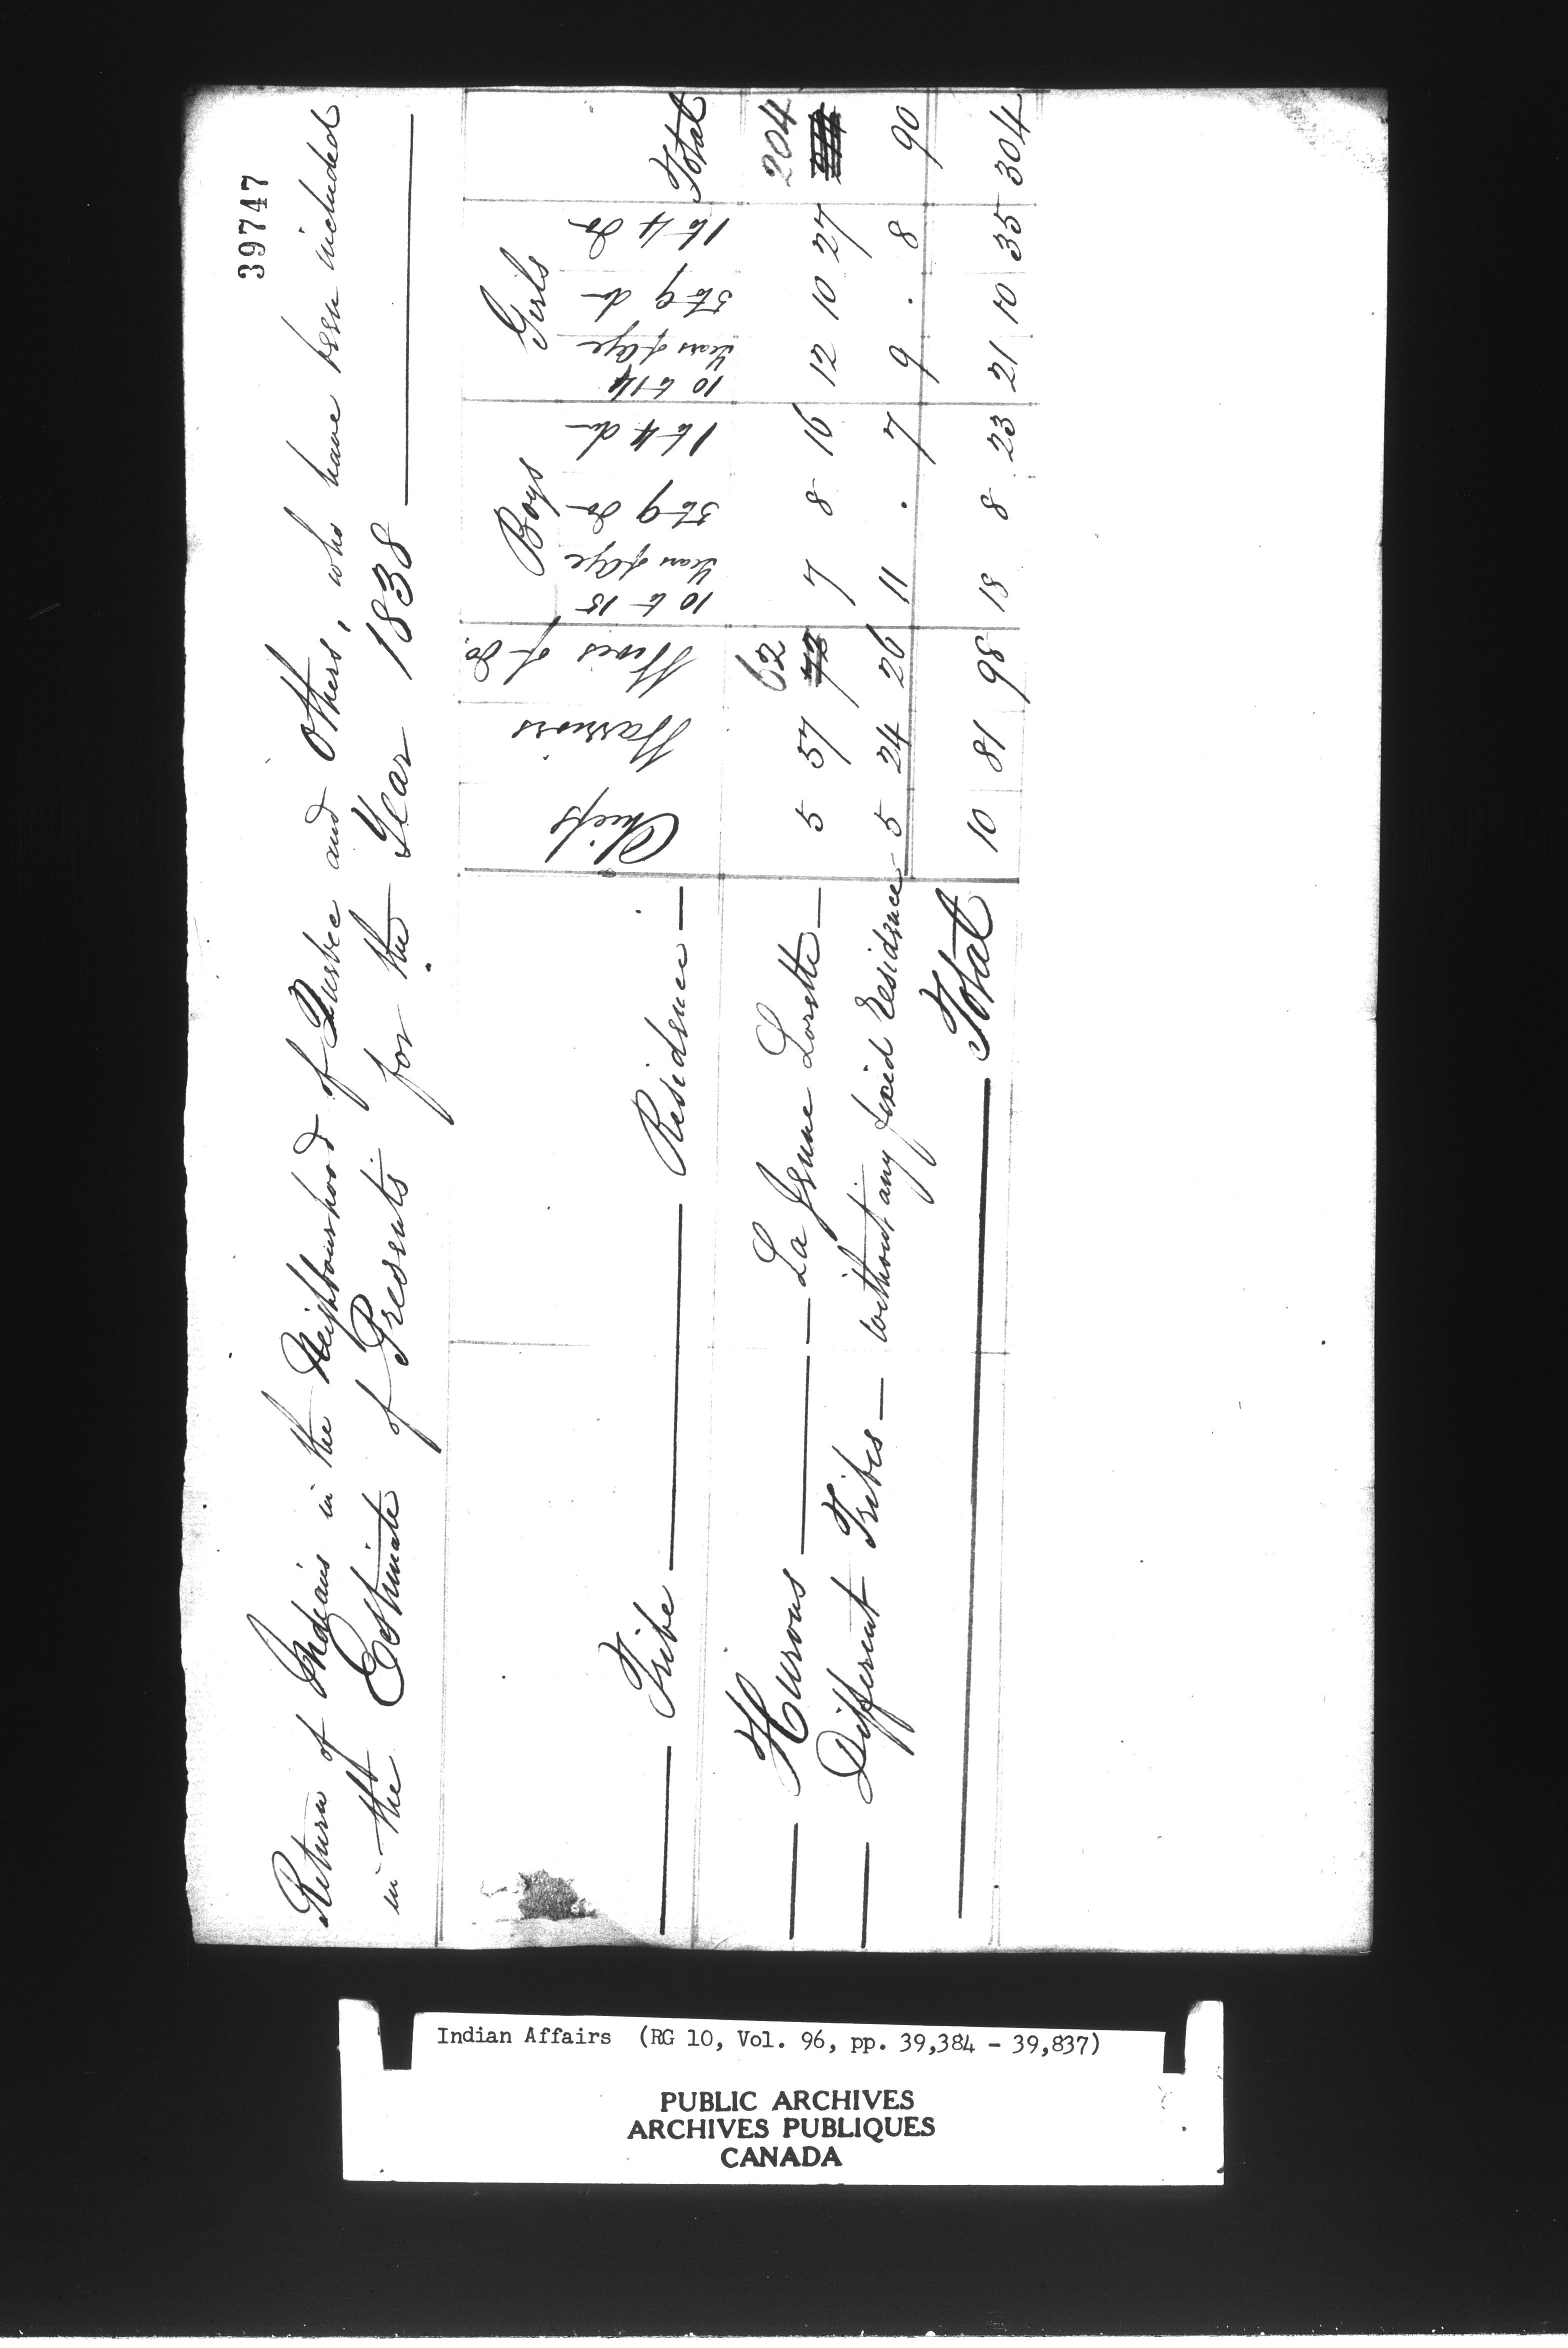 39747
Return of Indians in the Neighbourhood of Quebec and Others, who have been included
in the Estimate of Presents for the Year 1838
Tribe Residence Chiefs Warriors Wives of do. Boys Girls Total
10 to 15 Years of Age 5 to 9 do 1 to 4 do 10 to 14 Years of Age 5 to 9 do 1 to 4 do
62 204
Hurons La Jeune Lorette 5 57 72 7 8 16 12 10 27
Different Tribes without any fixed Residence 5 24 26 11 . 7 9 . 8 90
Total 10 81 98 18 8 23 21 10 35 304
Indian Affairs (RG 10, Vol. 96, pp. 39,384 - 39,837)
PUBLIC ARCHIVES
ARCHIVES PUBLIQUES
CANADA